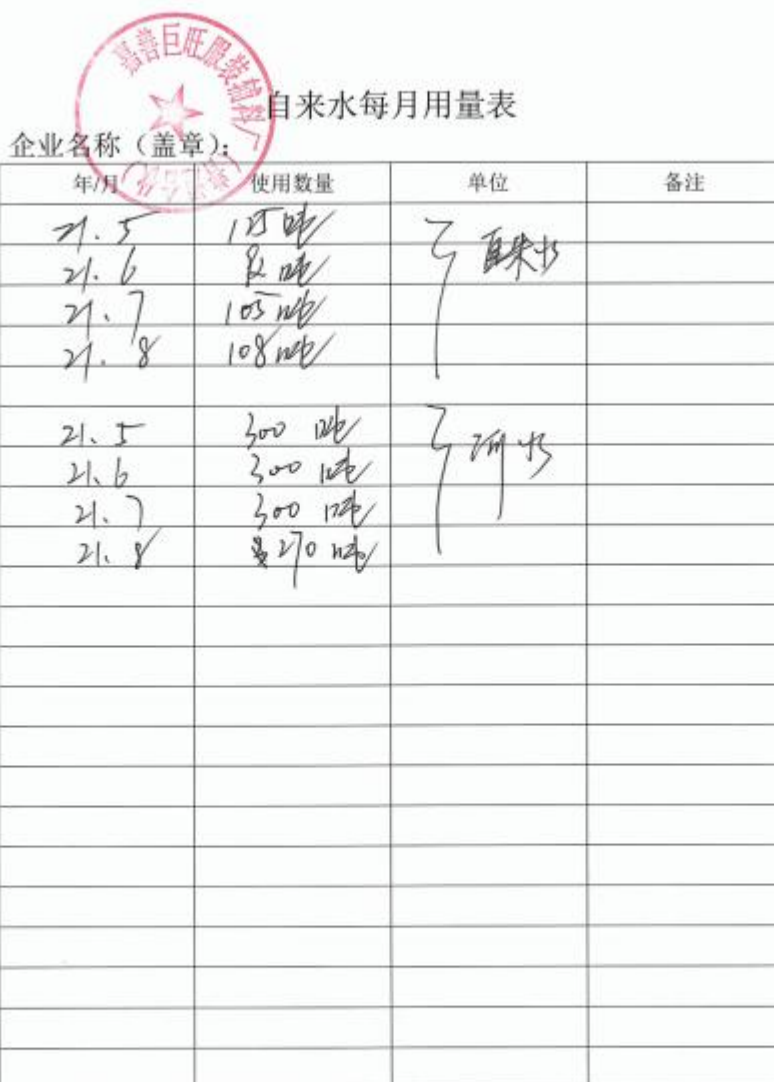 嘉善巨旺服装辅料厂
自来水每月用量表
企业名称（盖章）：
年/月 使用数量 单位 备注
21.5 125吨 自来水
21.6 吨
21.7 105吨
21.8 108吨
21.5 300 吨 河水
21.6 300 吨
21.7 300 吨
21.8 270 吨